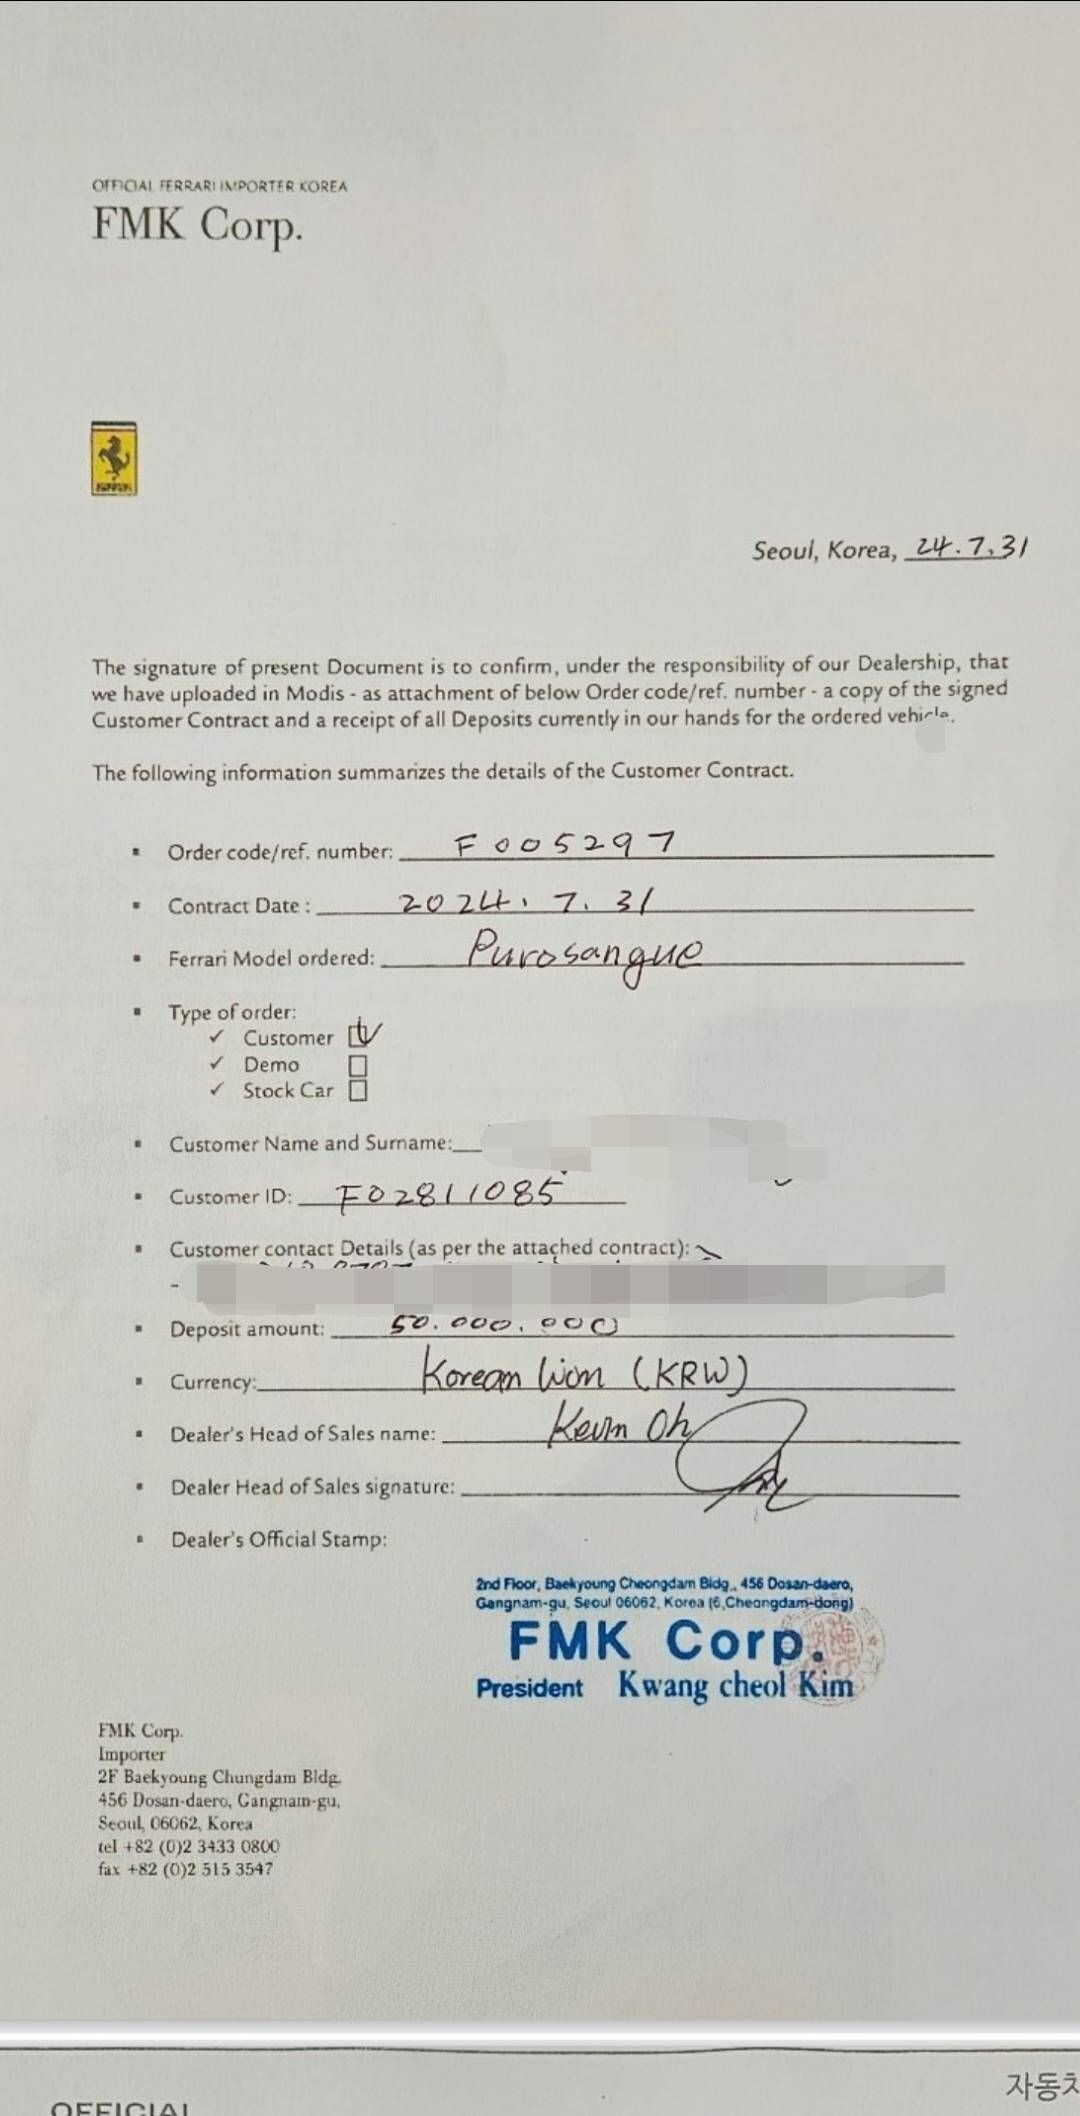 OFFICIAL FERRARI IMPORTER KOREA
FMK Corp.
Ferrari
Seoul, Korea, 24.7.31
The signature of present Document is to confirm, under the responsibility of our Dealership, that
we have uploaded in Modis - as attachment of below Order code/ref. number - a copy of the signed
Customer Contract and a receipt of all Deposits currently in our hands for the ordered vehicle.
The following information summarizes the details of the Customer Contract.
▪ Order code/ref. number: F005297
▪ Contract Date : 2024. 7. 31
▪ Ferrari Model ordered: Purosangue
▪ Type of order:
✓ Customer ☑
✓ Demo ☐
✓ Stock Car ☐
▪ Customer Name and Surname:
▪ Customer ID: F02811085
▪ Customer contact Details (as per the attached contract):
-
▪ Deposit amount: 50.000.000
▪ Currency: Korean Won (KRW)
▪ Dealer's Head of Sales name: Kevin Oh
▪ Dealer Head of Sales signature:
▪ Dealer's Official Stamp:
2nd Floor, Baekyoung Cheongdam Bldg., 456 Dosan-daero,
Gangnam-gu, Seoul 06062, Korea (6,Cheongdam-dong)
FMK Corp.
President Kwang cheol Kim
FMK Corp.
Importer
2F Baekyoung Chungdam Bldg.
456 Dosan-daero, Gangnam-gu,
Seoul, 06062, Korea
tel +82 (0)2 3433 0800
fax +82 (0)2 515 3547
자동차
OFFICIAL